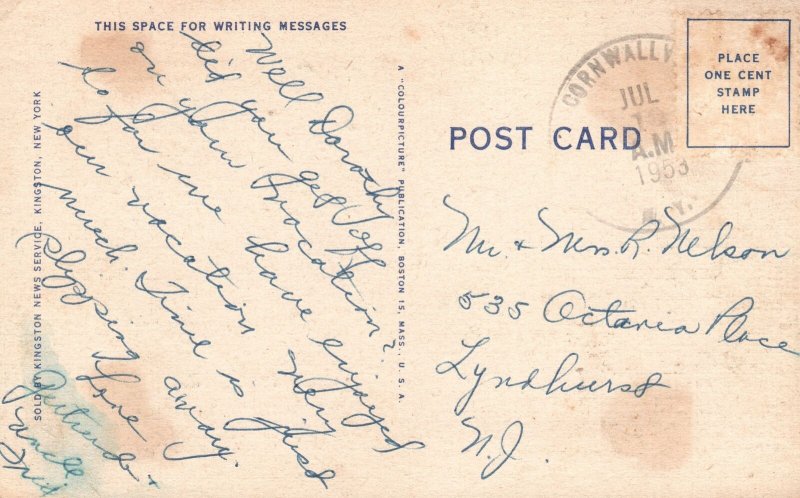 THIS SPACE FOR WRITING MESSAGES
Well Dorothy
did you get off
on your vacation?
So far we have enjoyed
our vacation very
much. Time is just
slipping away.
Love
Gertrude +
SOLD BY KINGSTON NEWS SERVICE, KINGSTON, NEW YORK
A "COLOURPICTURE" PUBLICATION, BOSTON 15, MASS., U. S. A.
POST CARD
PLACE
ONE CENT
STAMP
HERE
CORNWALLV
JUL
A.M
1953
N.Y.
Mr. + Mrs. R. Nelson
535 Octavia Place
Lyndhurst
N.J.